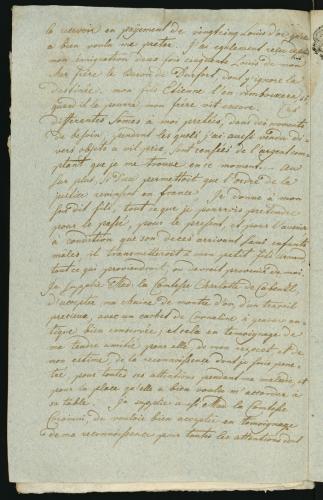 le recevoir en payement de vingtcinq Louis d'or qu'il
a bien voulu me preter. J'ai egalement reçu depuis
mon emigration deux fois cinquante Louis de mon
cher frere le Baron de Durfort dont j'ignore la
destinée. mon fils Etienne l'en remboursera, si
quand il le pourra, mon frere vit encore.
differentes sommes à mes parents, dans des moments
de besoin, pendant les quels j'ai aussi vendu di-
vers objets à vil prix, sont causes de l'argent com-
ptant que je me trouve en ce moment. Au
sur plus, si Dieu permettoit que l'ordre de la
justice revinssent en france, Je donne à mon
fils, tout ce que je pourrois pretendre
pour le passé, pour le present, et pour l'avenir
a condition que son deces arrivant sans enfants
males, il transmetteroit à mon petit fils
tout ce qui proviendroit, ou devroit provenir de moi.
Je supplie Mad. la Comtesse Charlotte de
d'accepter ma chaine de montre d'or d'un travail
precieux, avec un cachet de Cornaline à gravure an-
tique bien conservée; et cela en temoignage de
ma tendre amitié pour elle, de mon respect, et de
mon estime, de la reconnoissance dont je suis pene-
tré pour toutes ses attentions pendant ma maladie, et
pour la place qu'elle a bien voulu m'accorder à
sa table. Je supplie aussi Mad. la Comtesse
de vouloir bien accepter en temoignage
de ma reconnoissance pour toutes les attentions dont